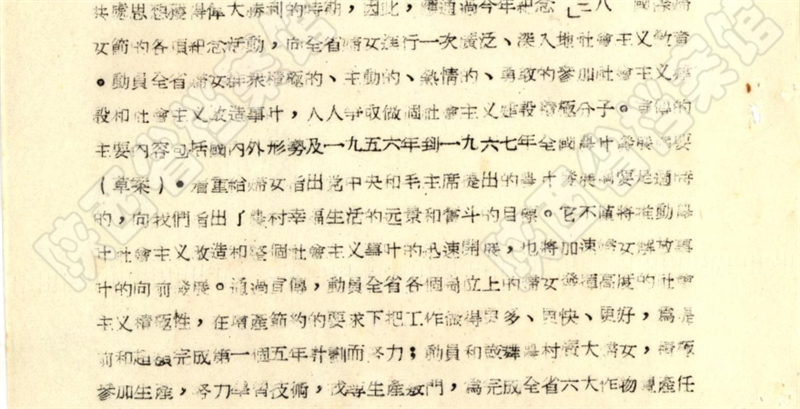 共產思想獲得偉大勝利的時期，因此，應通過今年紀念「三八」國際婦
女節的各項紀念活動，向全省婦女進行一次廣泛、深入地社會主义教育
。動員全省婦女群衆積極的、主動的、熱情的、勇敢的參加社會主义建
設和社會主义改造事业，人人爭取做個社會主义建設積極分子。宣傳的
主要內容包括國內外形勢及一九五六年到一九六七年全國農业發展綱要
（草案）。着重給婦女指出党中央和毛主席提出的農业發展綱要是適時
的，向我們指出了農村幸福生活的远景和奮斗的目標。它不僅將推動農
业社會主义改造和整個社會主义事业的迅速開展，也將加速婦女解放事
业的向前發展。通過宣傳，動員全省各個崗位上的婦女發揮高度的社會
主义積極性，在增產節約的要求下把工作做得更多、更快、更好，爲提
前和超額完成第一個五年計劃而努力；動員和鼓舞農村廣大婦女，積極
參加生產，努力學習技術，找尋生產竅門，爲完成全省六大作物增產任
陕西省档案馆
陕西省档案馆